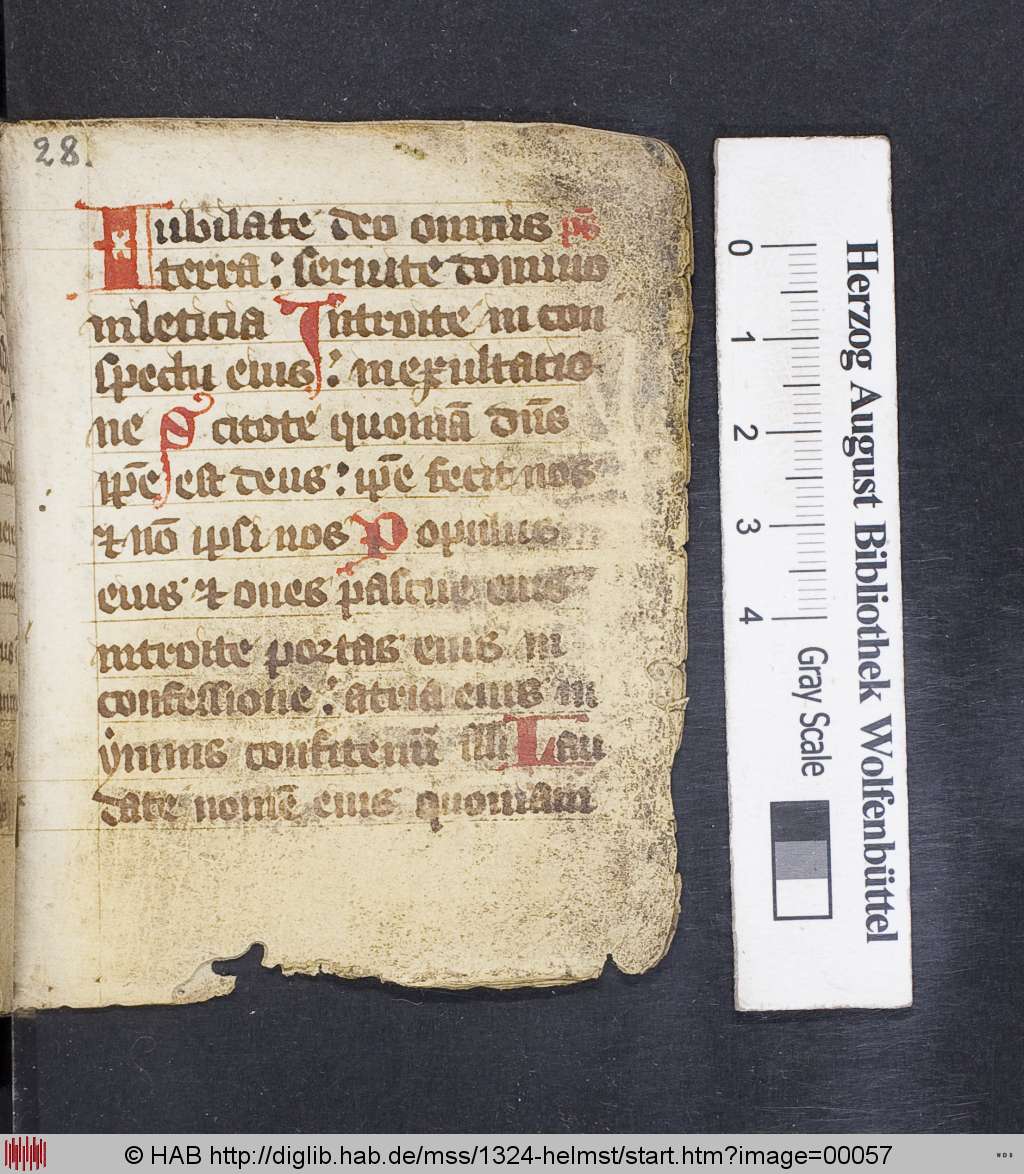 28.
Iubilate deo omnis ps̄
terra : seruite domino
in leticia Introite in con
spectu eius : in exultacio
ne Scitote quoniā dn̄s
ip̄e est deus : ip̄e fecit nos
⁊ nō ipsi nos Populus
eius ⁊ oues pascue eius
introite portas eius in
confessione : atria eius in
ẏmnis confitemī illi Lau
date nomē eius quoniam
0 1 2 3 4
Gray Scale
Herzog August Bibliothek Wolfenbüttel
© HAB http://diglib.hab.de/mss/1324-helmst/start.htm?image=00057
WDB